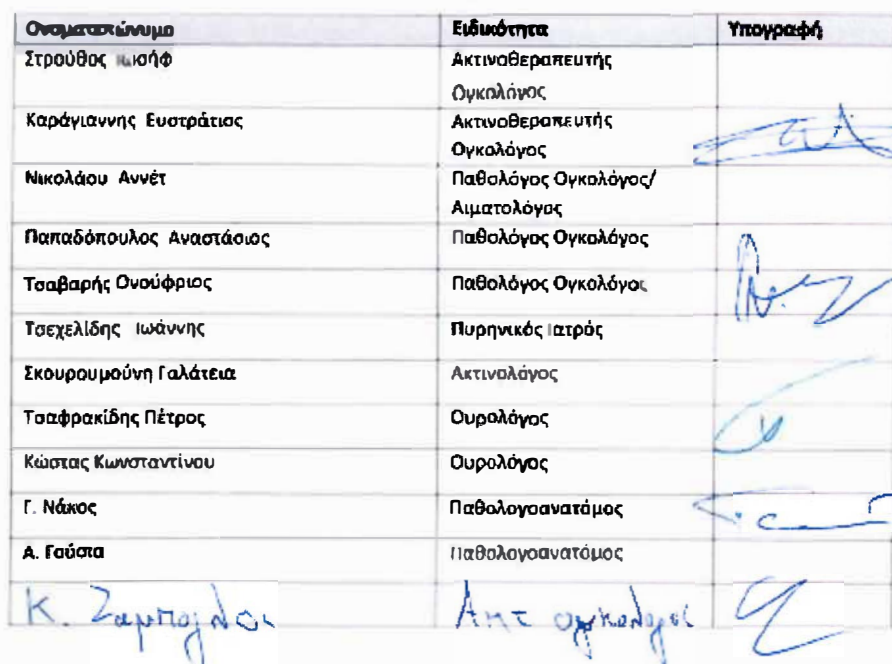 Ονοματεπώνυμο Ειδικότητα Υπογραφή
Στρούθος Ιωσήφ Ακτινοθεραπευτής
Ογκολόγος
Καράγιαννης Ευστράτιος Ακτινοθεραπευτής
Ογκολόγος
Νικολάου Αννέτ Παθολόγος Ογκολόγος/
Αιματολόγος
Παπαδόπουλος Αναστάσιος Παθολόγος Ογκολόγος
Τσαβαρής Ονούφριος Παθολόγος Ογκολόγος
Τσεχελίδης Ιωάννης Πυρηνικός Ιατρός
Σκουρουμούνη Γαλάτεια Ακτινολόγος
Τσαφρακίδης Πέτρος Ουρολόγος
Κώστας Κωνσταντίνου Ουρολόγος
Γ. Νάκος Παθολογοανατόμος
Α. Γούσια Παθολογοανατόμος
Κ. Ακτ ογκολόγος